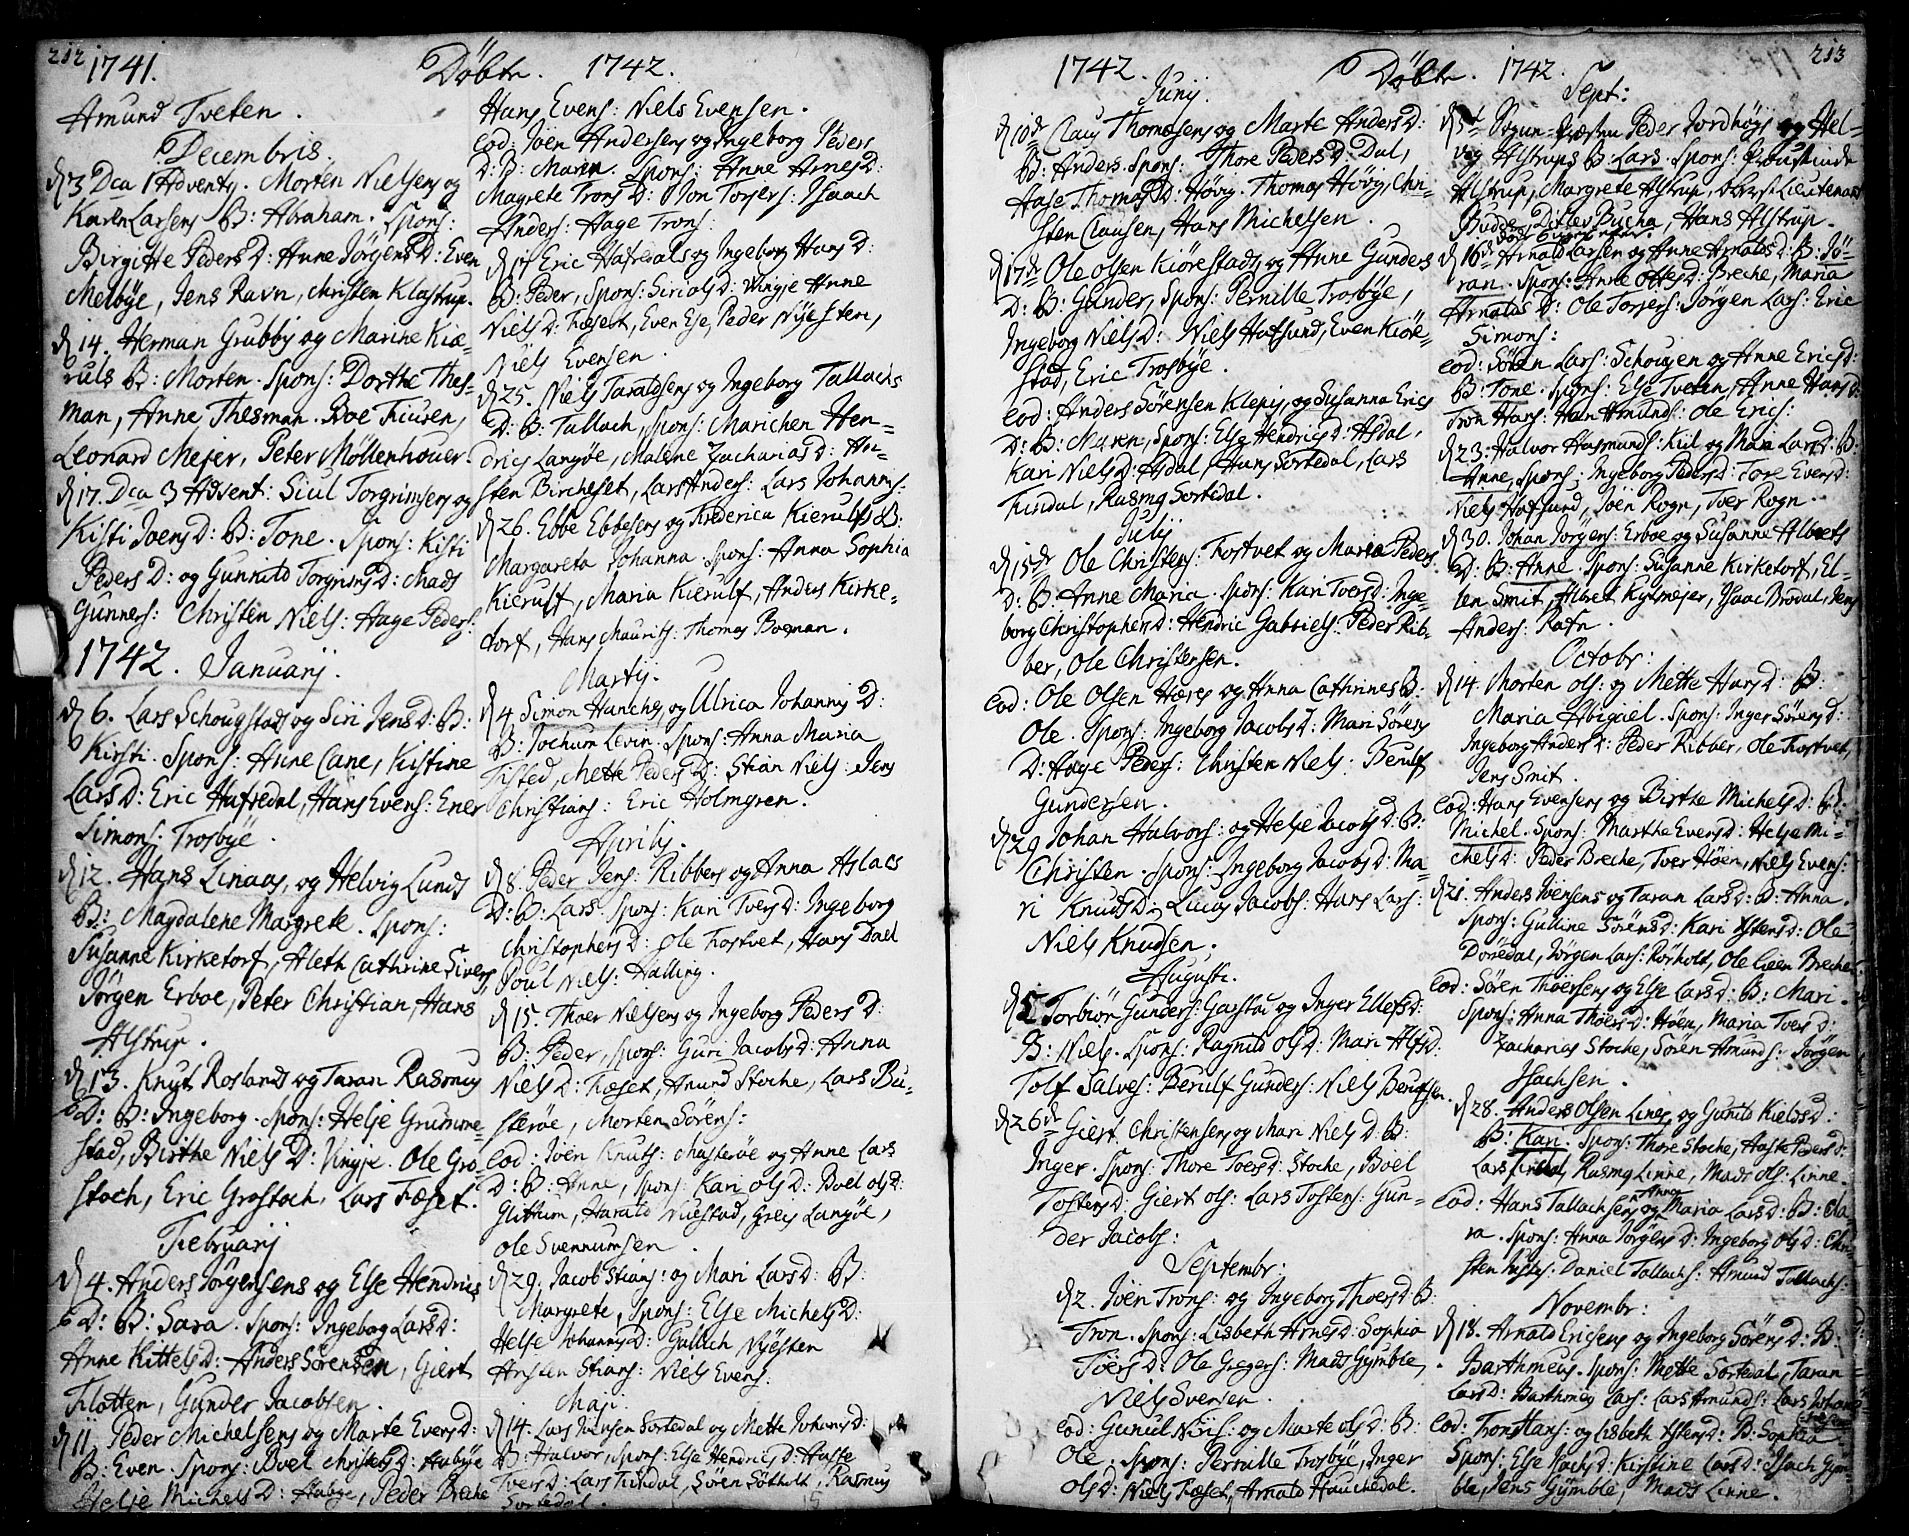 212 1741. Döbte. 1742.
Amund Tveten.
Decembris.
d 3 Dca 1 Advent9. Morten Nielsens og
Karen Larsens B: Abraham. Spons:
Birgitte PedersD: Anne JörgensD: Even
Melbÿe, Jens Ravn, Christen Klastrup.
d 14. Herman Grubbs og Marine Kiæ-
rulfs B: Morten. Spons: Dorthe Thes-
man, Anne Thesman. Boe Tiusen,
Leonard Mejer, Peter Möllenhouer.
d 17. Dca 3 Advent: Siul Torgrimsens og
Kisti JoensD: B: Tone. Spons: Kisti
PedersD: og Gunnild TorgrimsD: Mads
Gunners: Christen Niels: Aage Peders:
1742. Januarij.
d 6. Lars Schougstads og Siri JensD: B:
Kirsti. Spons: Anne Cane, Kistine
LarsD: Eric Hafredal, Hans Evens: Ener
Simons: Trosbÿe.
d 12. Hans Linaas, og Helvig Lunds
B: Magdalene Margrete. Spons:
Susanne Kirketorf, Aleth Cathrine Sivers,
Jörgen Erboe, Peter Christian, Hans
Alstrup.
d 13. Knut Roslands og Taran Rasmus
D: B: Ingeborg. Spons: Helje Grumme-
stad, Birthe NielsD: Vinje. Ole Gro-
stoch, Eric Grostoch, Lars Fæset.
Februarij
d 4. Anders Jörgensens og Else Hendrics
D: B: Sara. Spons: Ingeborg LarsD:
Anne KittelsD: Anders Sörensen, Giert
Flotten, Gunder Jacobsen.
d 11 Peder Michelsens og Marte EversD:
B: Even. Spons: Boel ChristensD: Aabÿe
Helje MichelsD: Aabye, Peder Breche
Hans Evens: Niels Evensen.
eod: Joen Andersens og Ingeborg Peders
D: B: Maren. Spons: Anne ArnesD:
Magrete TronsD: Jon Torsers: Isaach
Anders: Aage Trons:
d 17 Eric Hafredals og Ingeborg HansD:
B: Peder, Spons: Siri OlsD: Vingje Anne
NielsD: Fæset, Even Ese, Peder Nÿesten,
Niels Evensen.
d 25. Niels Taraldsens og Ingeborg Tallachs
D: B: Tallach, Spons: Marichen Hen-
drics Langöe, Malene ZachariasD: An-
sten Bircheset, Lars Anders: Lars Johanns:
d 26. Ebbe Ebbesens og Frederica Kierulfs B:
Margareta Johanna. Spons: Anna Sophia
Kierulf, Maria Kierulf, Anders Kirke-
torf, Hans Maurits: Thomas Bozman.
Martij.
d 4. Simon Hanches og Ulrica JohannsD:
B: Jochum Levin. Spons: Anna Maria
Tisted, Mette PedersD: Stian Niels: Jens
Christians: Eric Holmgren.
Aprilij.
d 8. Peder Jens: Ribbers og Anna Aslacs
D: B: Lars. Spons: Kari TversD: Ingeborg
ChristophersD: Ole Tostvet, Hans Dall
Poul Niels: Halling.
d 15. Thoer Nielsens og Ingeborg PedersD:
B: Peder, Spons: Guri JacobsD: Anna
NielsD: Fæset, Amund Stoche, Lars Bu-
steröe, Morten Sörens:
Eod: Joen Knuts: Musteröe og Anne Lars
D: B: Anne, Spons: Kari OlsD: Boel OlsD:
Glittum, Harald Nuestad, Greis Langöe,
Ole Svennumsen.
d 29. Jacob Stians: og Mari LarsD: B:
Margrete, Spons: Else MichelsD:
Helje JohannsD: Gullich Nÿesten
Ansten Stians: Niels Evens:
Maji.
d 14. Lars Iversen Sortedal og Mette JohansD:
B: Halvor, Spons: Else HendricsD: Aaste
TversD: Lars Tindal, Sören Sötholt, Rasmus
Sortedal.
1742. Döbte. 1742. 213
Junij.
d 10de Claus Thomæsens og Marte AndersD:
B: Anders. Spons: Thore PedersD: Dal,
Aase ThomasD: Hövg. Thomas Hövg, Chri-
sten Clausen, Hans Michelsen.
d 17de Ole Olsen Kiörestads og Anne Gunders
D: B: Gunder, Spons: Pernille Trosbÿe,
Ingeborg NielsD: Niels Hafsund, Even Kiöre-
stad, Eric Trosbÿe.
eod: Anders Sörensen Kleps, og Susanna Erics
D: B: Maren, Spons: Else HendricsD: Asdal,
Kari NielsD: Asdal, Hans Sortedal, Lars
Tindal, Rasmus Sortedal.
Julij
d 15de Ole Christens: Tostvet og Maria Peders
D: B: Anne Maria. Spons: Kari ToersD: Inge-
borg ChristophersD: Hendric Gabriels: Peder Rib-
ber, Ole Christensen.
Eod: Ole Olsen Aares og Anna Cathrines B:
Ole. Spons: Ingeborg JacobsD: Mari Sörens
D: Hage Peders: Christen Niels: Berulf
Gundersen.
d 29 Johan Halvors: og Helje JacobsD: B:
Christen. Spons: Ingeborg JacobsD: Ma-
ri KnudsD: Lucas Jacobs: Hans Lars:
Niels Knudsen.
Augusti.
d 5 Torbiör Gunders: Garstad og Inger EllefsD:
B: Niels. Spons: Ragnild OlsD: Mari AlfsD:
Tolf Salves: Berulf Gunders: Niels Berulfsen.
d 26de Giert Christensens og Mari NielsD: B:
Inger. Spons: Thore ToersD: Stoche, Boel
TostensD: Giert Ols: Lars Tostens: Gun-
der Jacobs:
Septembr:
d 2. Joen Trons: og Ingeborg ThoersD: B:
Tron. Spons: Lisbeth ArnesD: Sophia
ToersD: Ole Gregers: Mads Gÿmble,
Niels Svensen.
eod: Gunul Niris: og Marte OlsD: B:
Ole. Spons: Pernille Trosbÿe, Inger
OlsD: Niels Fæset, Arnold Hauchedal.
Sept:
d 5t Sogne-Præsten Peder Jordhöÿs og Hel-
vig Alstrups B: Lars. Spons: Probstinde
Alstrup, Margrete Alstrup, Oberst Lieutenant
Budde, Ditlev Bucha, Hans Alstrup.
d 16de Arnold Larsen og Anne ArnoldsD: B: Jö-
ran. Spons: Anne OttesD: Breche, Maria
ArnoldsD: Ole Torjers: Jörgen Lars: Eric
Simons:
eod: Sören Lars: Schougen og Anne EricsD:
B: Tone. Spons: Else Tveten, Anne HansD:
Tron Hans: Amunds: Ole Erics:
d 23. Halvor Aasmunds: Kiil og Mari LarsD: B:
Anne, Spons: Ingeborg PedersD: Tore EversD:
Niels Hafsund, Joen Rogn, Tver Rogn.
d 30. Johan Jörgens: Erboe og Susanne Alberts
D: B: Anne. Spons: Susanne Kirketorf, El-
len Smit, Albret Kylmejer, Isaac Brodal, Jens
Anders: Rafn.
Octobr:
d 14. Morten Ols: og Mette HansD: B:
Maria Abigael. Spons: Inger SörensD:
Ingeborg AndersD: Peder Ribber, Ole Tostvet,
Jens Smit.
eod: Hans Evensens og Birthe MichelsD: B:
Michel. Spons: Marthe EversD: Helje Mi-
chelsD: Peder Breche, Tver Höen, Niels Evens:
d 21. Anders Joensens og Taran LarsD: B: Anna.
Spons: Guline SörensD: Kari AstensD: Ole
Dörredal, Jörgen Lars: Rörholt, Ole Lieen Breche
eod: Sören Thoersens og Else LarsD: B: Mari.
Spons: Anna ThoersD: Höen, Maria TversD:
Zacharias Stoche, Sören Amunds: Jörgen
Isachsen.
d 28. Anders Olsen Lines, og Gunild KieldsD:
B: Kari. Spons: Thore Stoche, Aaste PedersD:
Lars Lindal, Rasmus Linne, Mads Ols: Linne.
eod: Hans Tallachsens og Anna Maria LarsD: B: Cla-
ra. Spons: Anna JörgensD: Ingeborg OlsD: Chri-
sten Daniel Tallachs: Amund Tallachs:
Novembr:
d 18. Arnold Ericsens og Ingeborg SörensD: B:
Barthmeus. Spons: Mette Sortedal, Taran
LarsD: Barthmeus Lars: Lars Amunds: Lars Johan-
nesen
eod: Tron Hans: og Lisbeth AstensD: B: Sophia.
Spons: Else IsachsD: Kirstine LarsD: Isach Gÿm-
ble, Jens Gÿmble, Mads Linne.